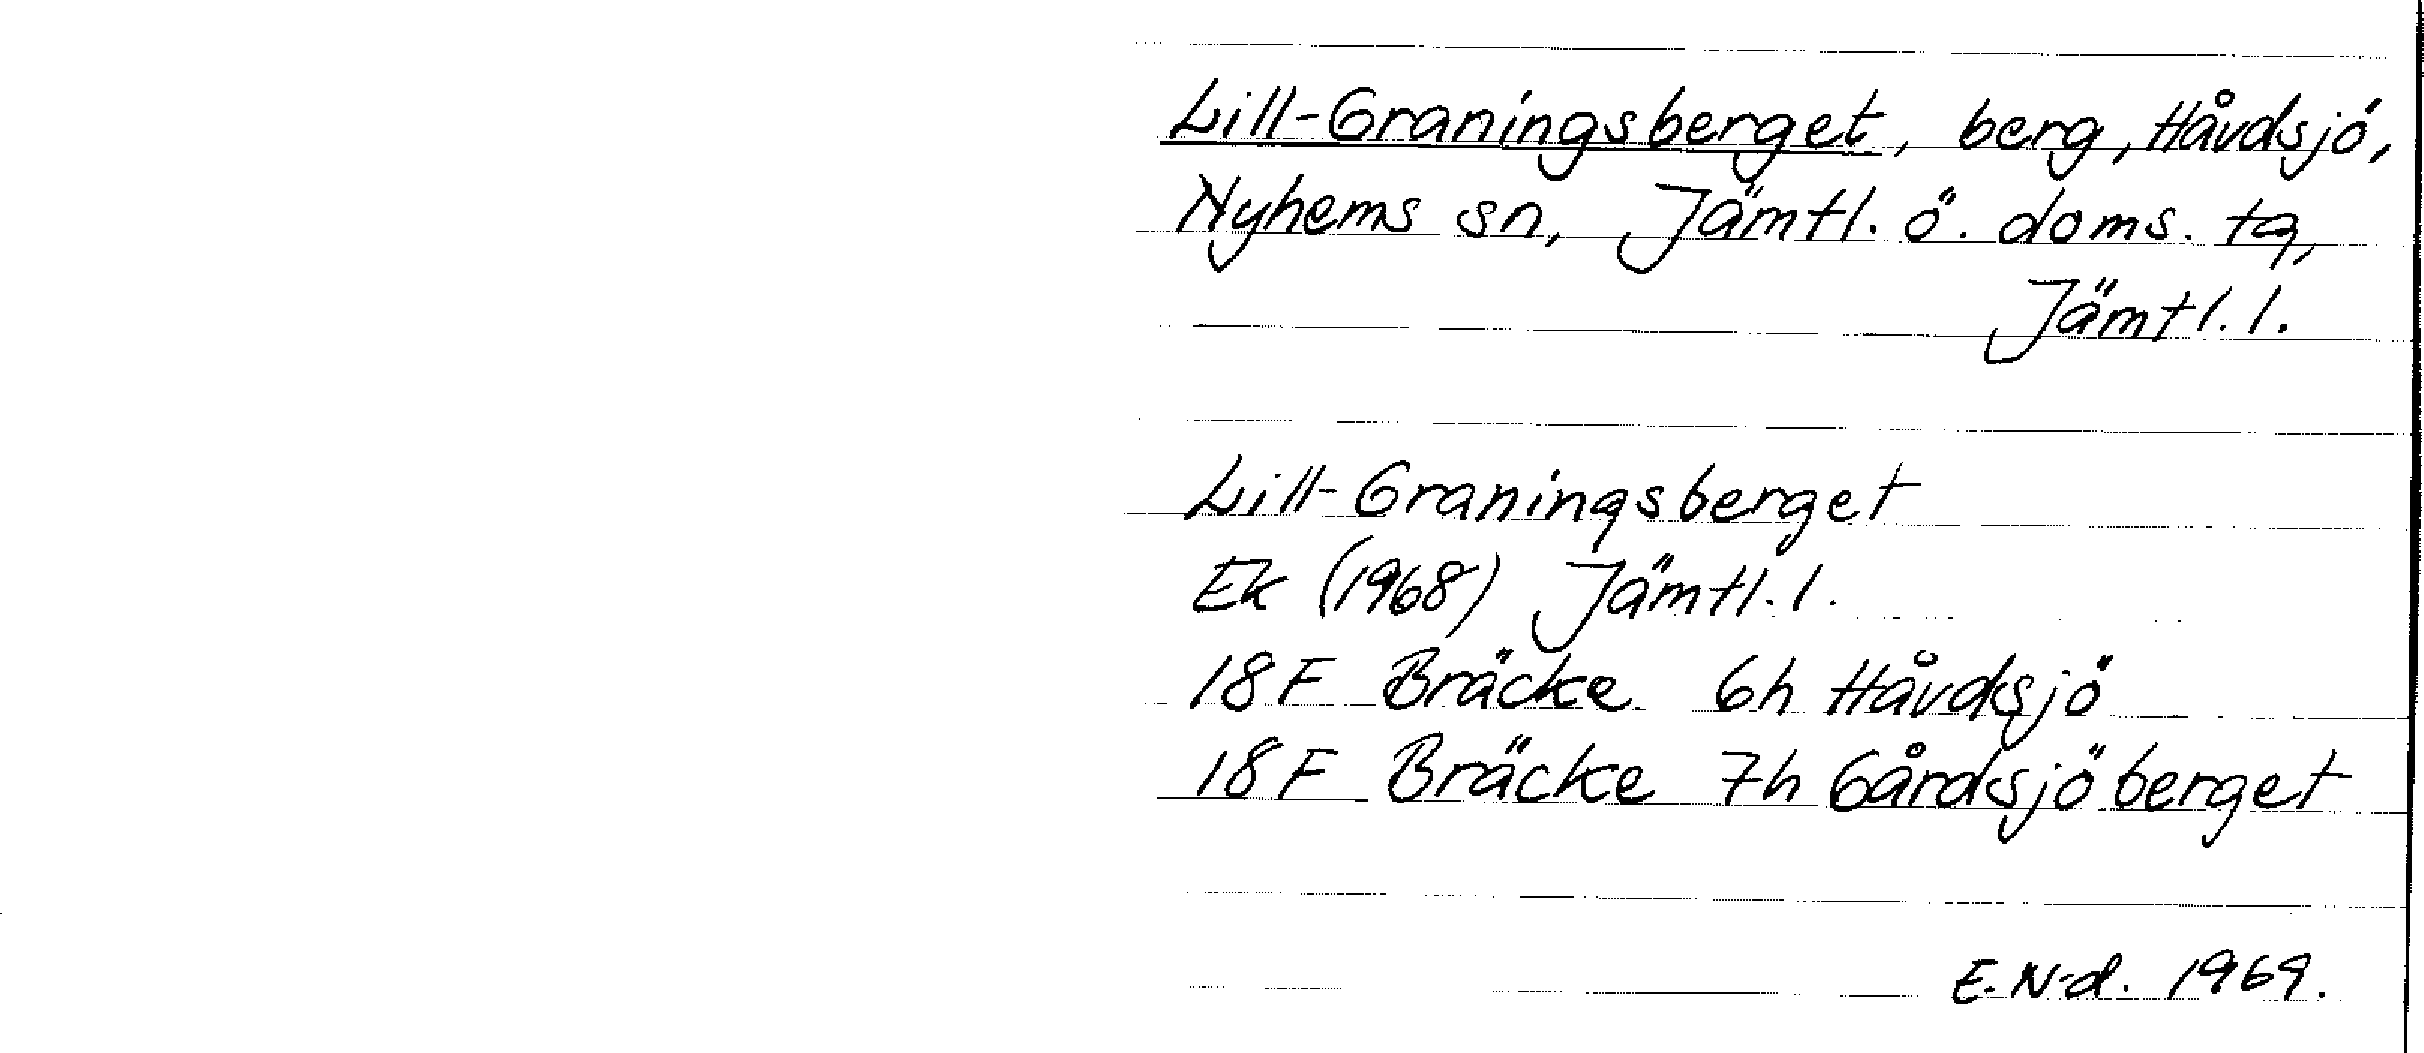 Lill-Graningsberget, berg, Håvdsjö,
Nyhems sn, Jämtl. ö. doms. tg,
Jämtl. l.
Lill-Graningsberget
Ek (1968) Jämtl. l.
18 F Bräcke 6h Håvdsjö
18 F Bräcke 7h Gårdsjöberget
E. N-d. 1969.